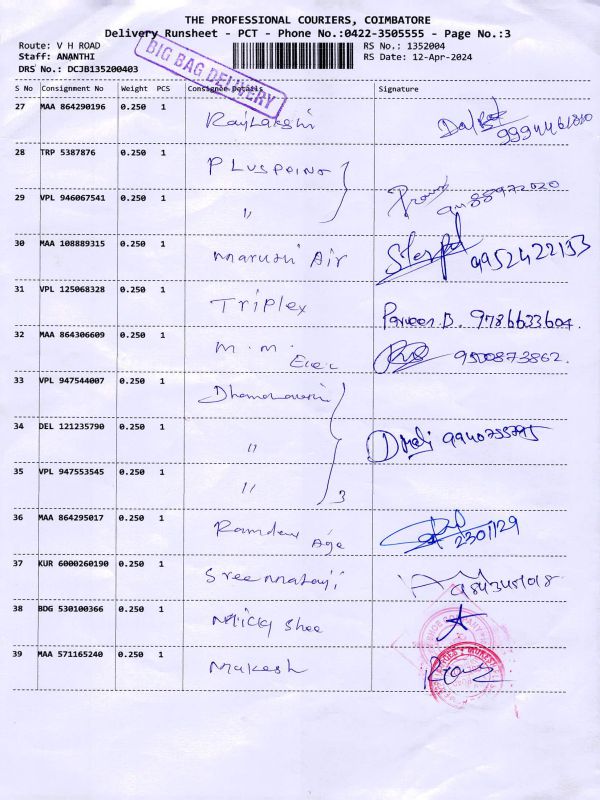 THE PROFESSIONAL COURIERS, COIMBATORE
Delivery Runsheet - PCT - Phone No.:0422-3505555 - Page No.:3
Route: V H ROAD RS No.: 1352004
Staff: ANANTHI RS Date: 12-Apr-2024
DRS No.: DCJB135200403
BIG BAG DELIVERY
S No Consignment No Weight PCS Consignee Details Signature
27 MAA 864290196 0.250 1
28 TRP 5387876 0.250 1 PLUSPOINT
29 VPL 946067541 0.250 1 "
30 MAA 108889315 0.250 1 Maruthi Air 9952422133
31 VPL 125068328 0.250 1 Triplex Parveen B. 9786633604.
32 MAA 864306609 0.250 1 M.M. Elec 9500873862.
33 VPL 947544007 0.250 1
34 DEL 121235790 0.250 1 "
35 VPL 947553545 0.250 1 " 3
36 MAA 864295017 0.250 1 Ramdev Age 2301129
37 KUR 6000260190 0.250 1 Sree Mataji
38 BDG 530100366 0.250 1 Micky Shoe
39 MAA 571165240 0.250 1 Mukesh